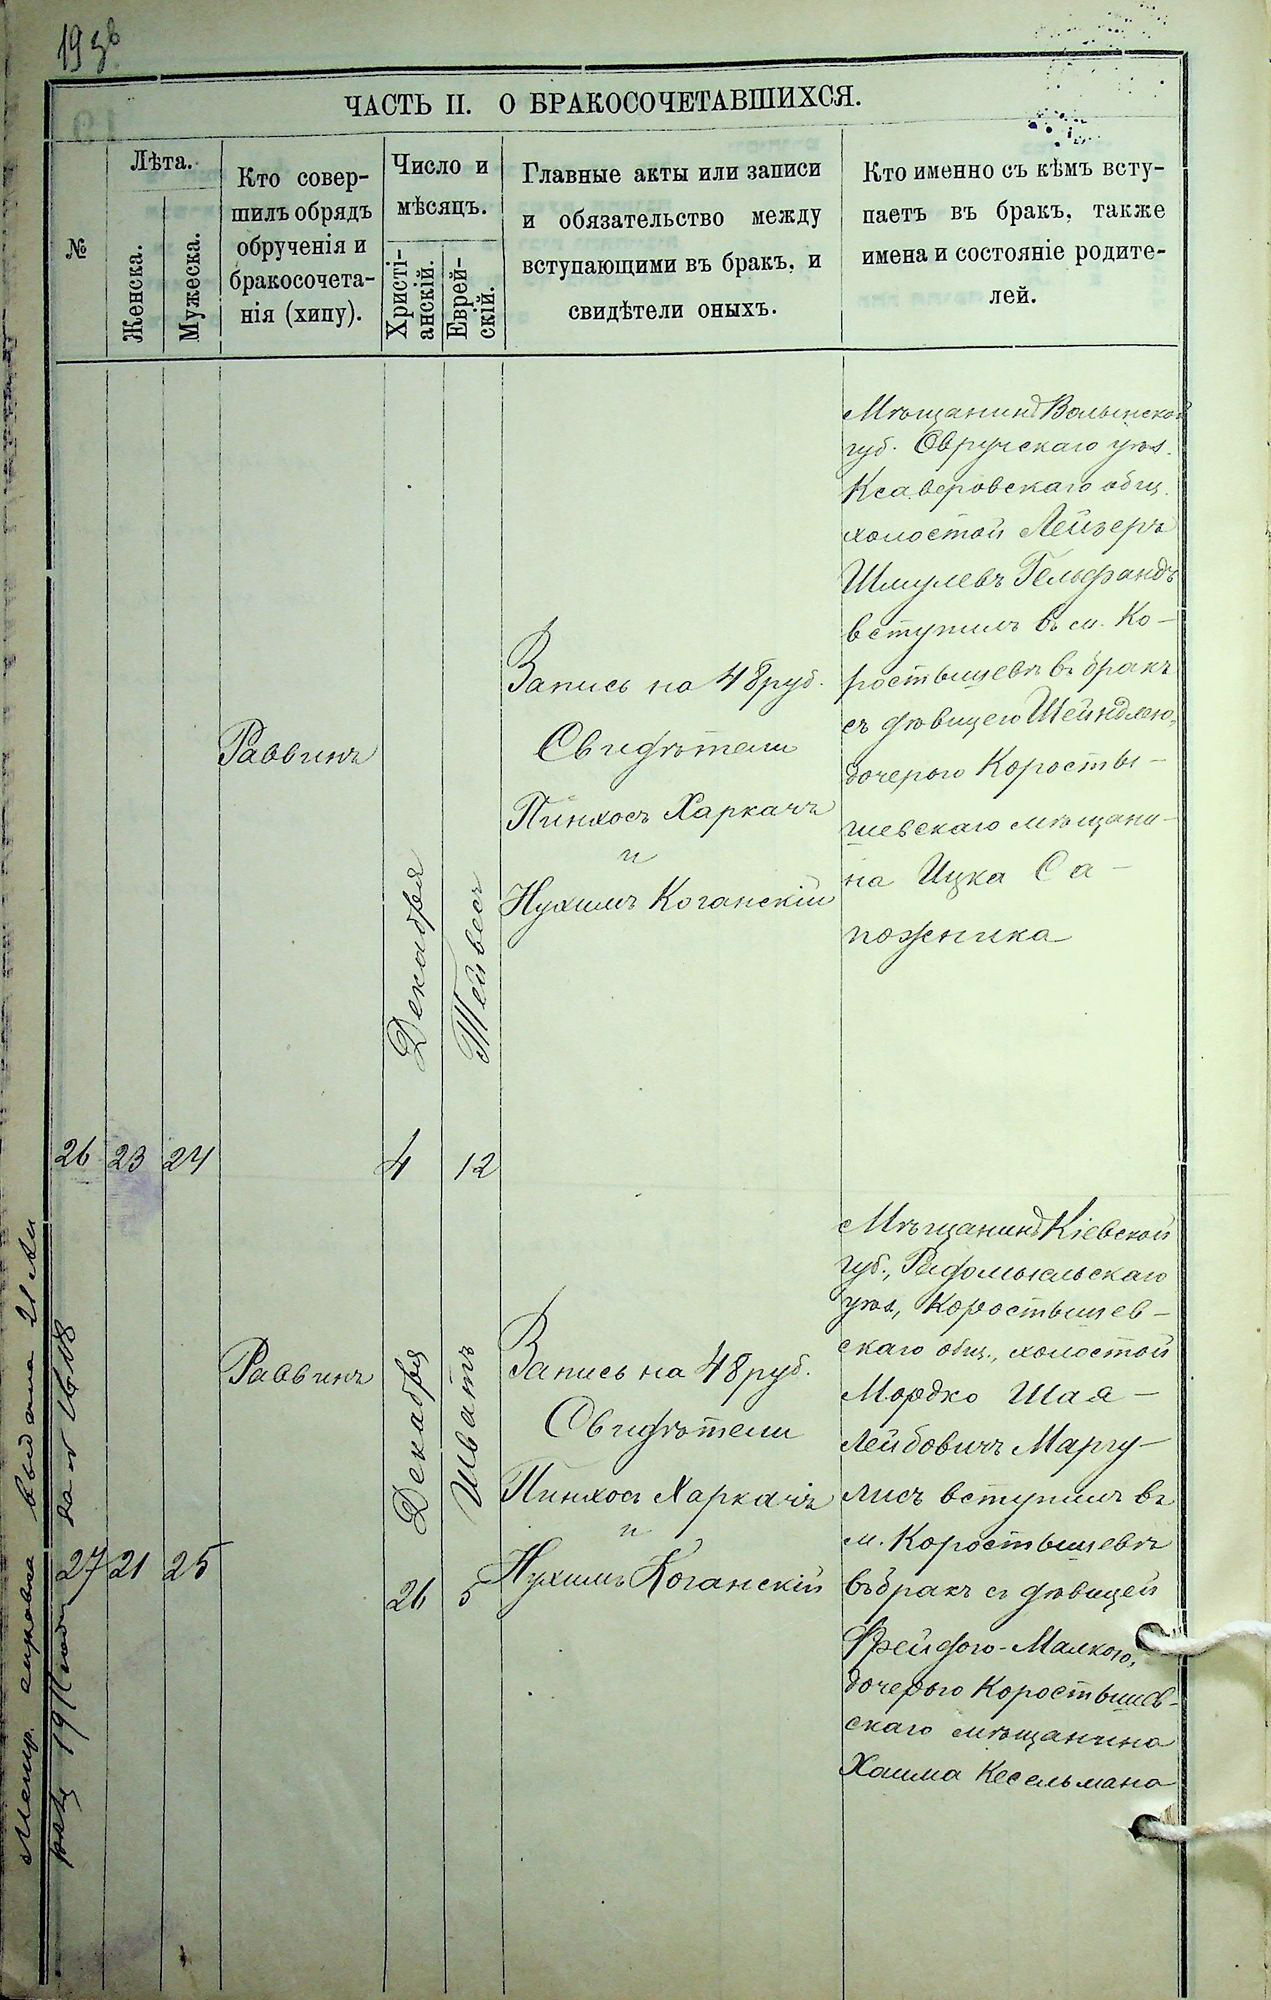 19 об
ЧАСТЬ II. О БРАКОСОЧЕТАВШИХСЯ.
№
Лѣта.
Женска.
Мужеска.
Кто совер-
шилъ обрядъ
обрученія и
бракосочета-
нія (хипу).
Число и
мѣсяцъ.
Христі-
анскій.
Еврей-
скій.
Главные акты или записи
и обязательство между
вступающими въ бракъ, и
свидѣтели оныхъ.
Кто именно съ кѣмъ всту-
паетъ въ бракъ, также
имена и состояніе родите-
лей.
26
23
24
Раввинъ
Декабря
4
Тейвесъ
12
Запись на 48 руб.
Свидѣтели
Пинхосъ Харкачъ
и
Нухимъ Коганскій
Мѣщанинъ Волынской
губ. Овручскаго уѣз.
Ксаверовскаго общ.
холостой Лейзеръ
Шмулевъ Гельфандъ
вступилъ въ м. Ко-
ростышевѣ въ бракъ
съ дѣвицею Шейндлею,
дочерью Коросты-
шевскаго мѣщани-
на Ицка Са-
пожника
27
21
25
Раввинъ
Декабря
26
Шватъ
5
Запись на 48 руб.
Свидѣтели
Пинхосъ Харкачъ
и
Нухимъ Коганскій
Мѣщанинъ Кіевской
губ., Радомысльскаго
уѣз., Коростышев-
скаго общ., холостой
Мордко Шая-
Лейбовичъ Маргу-
лисъ вступилъ въ
м. Коростышевѣ
въ бракъ съ дѣвицей
Фрейдою-Малкою,
дочерью Коростышев-
скаго мѣщанина
Хаима Кесельмана
справка выдана 21